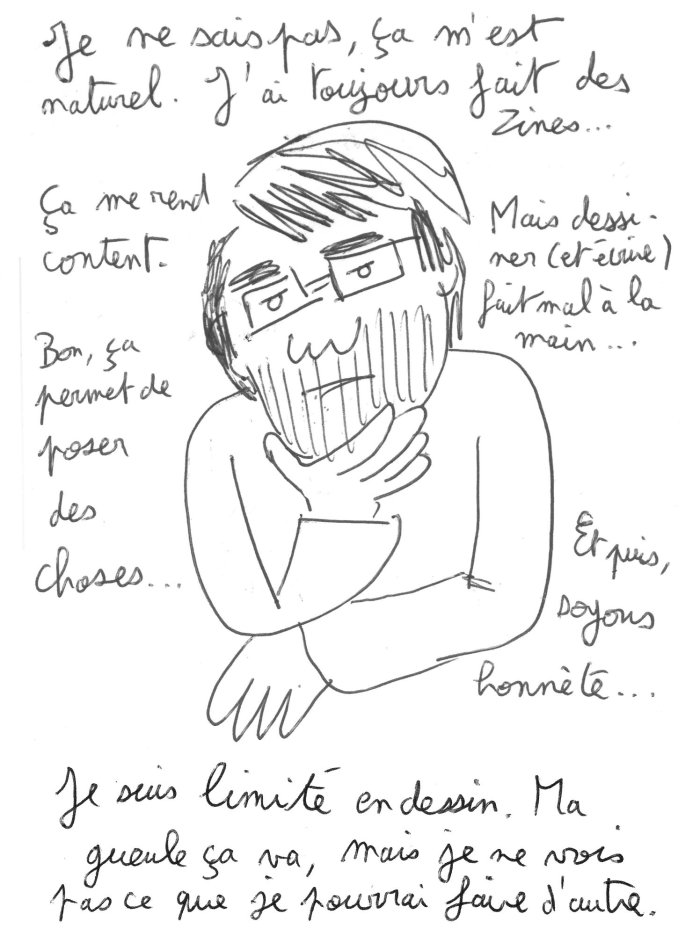 Je ne sais pas, ça m'est
naturel. J'ai toujours fait des
zines...
Ça me rend
content.
Mais dessi-
ner (et écrire)
fait mal à la
main...
Bon, ça
permet de
poser
des
choses...
Et puis,
soyons
honnète...
Je suis limité en dessin. Ma
gueule ça va, mais je ne vois
pas ce que je pourrai faire d'autre.